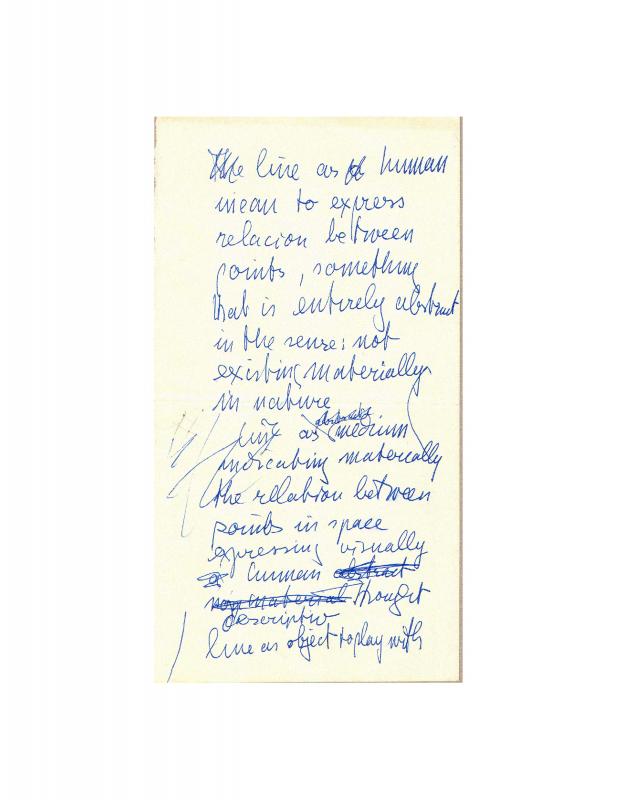 The line as human
mean to express
relacion between
points, something
that is entirely abstract
in the sense: not
existing materially
in nature
line as medium
indicating materially
the rellation between
points in space
expressing visually
human abstract
non material thought
descriptiv
line as object to play with